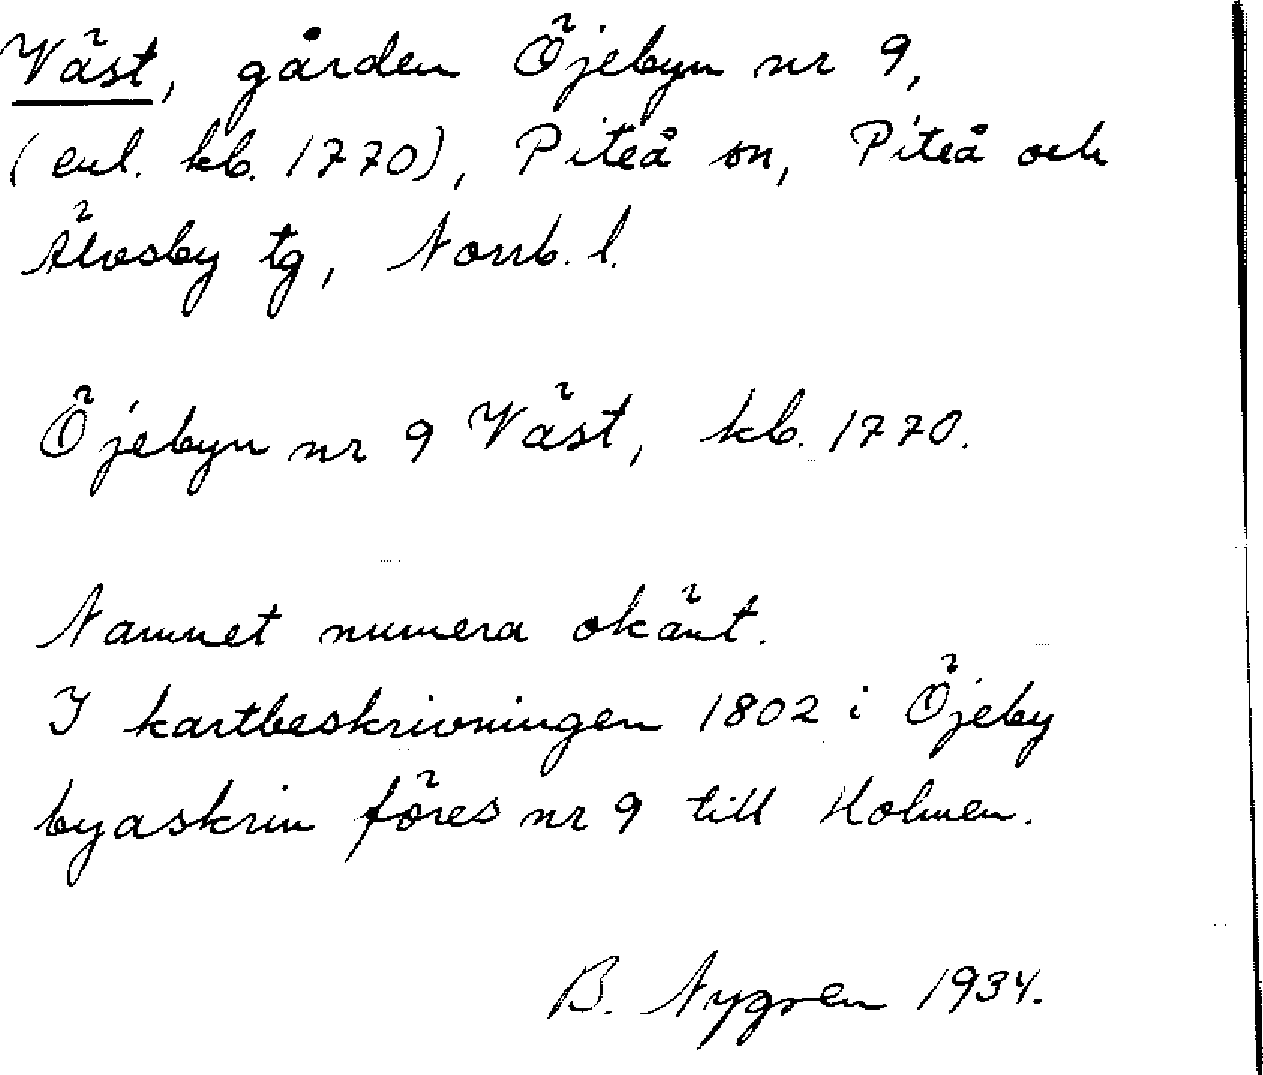 Väst, gården Öjebyn nr 9,
(enl. kb. 1770), Piteå sn, Piteå och
Älvsby tg, Norrb. l.
Öjebyn nr 9 Väst, kb. 1770.
Namnet numera okänt.
I kartbeskrivningen 1802 i Öjeby
byaskrin föres nr 9 till Holmen.
B. Nygren 1934.